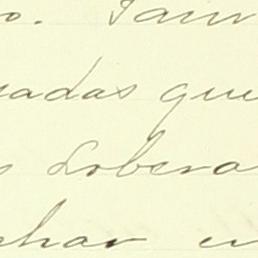 o. Tam
uadas que
s Sobera
char en